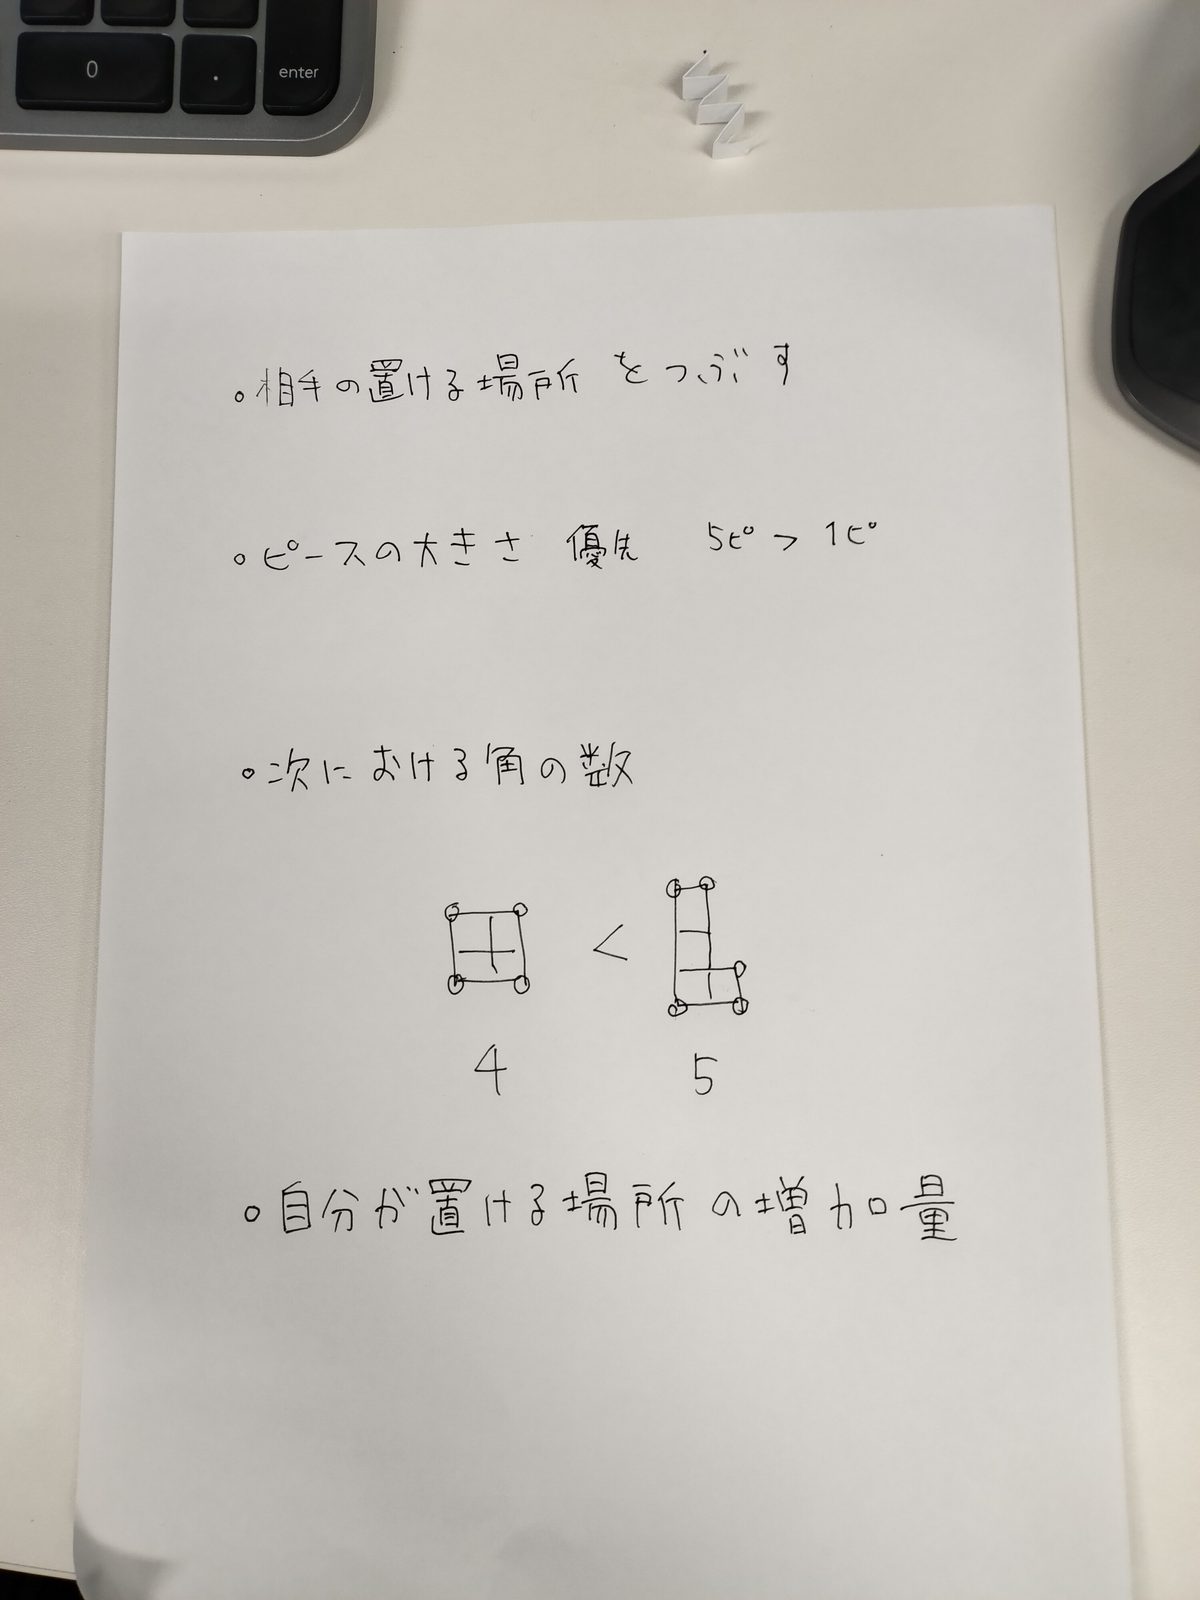 0 . enter
。相手の置ける場所をつぶす
。ピースの大きさ 優先 5ピ > 1ピ
。次における角の数
<
4 5
。自分が置ける場所の増加量